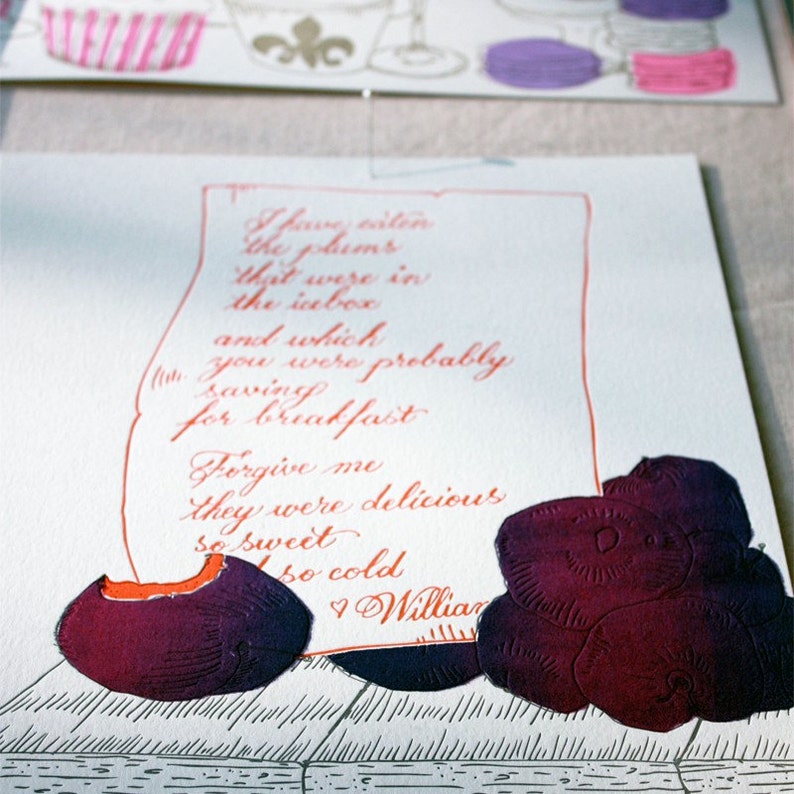 I have eaten
the plums
that were in
the icebox
and which
you were probably
saving
for breakfast
Forgive me
they were delicious
so sweet
so cold
♡ William